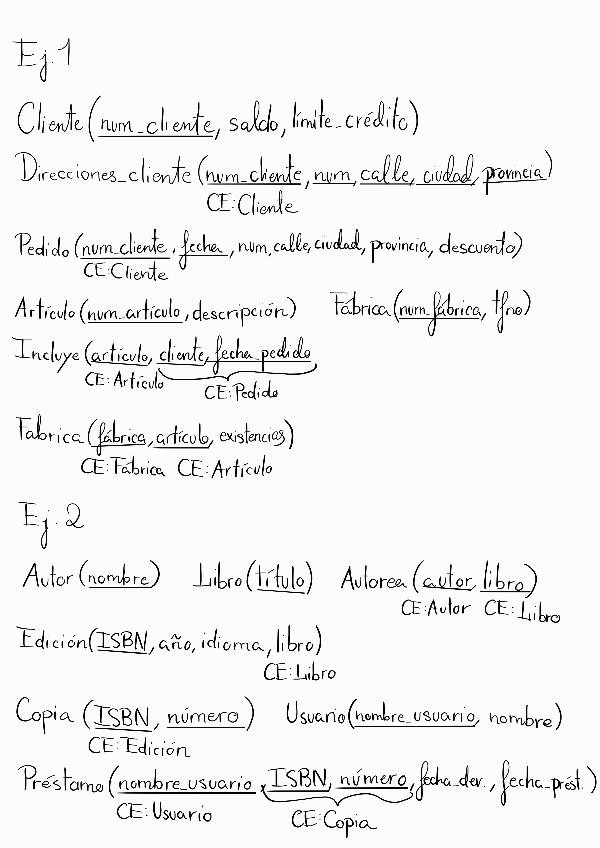 Ej.1
Cliente (num_cliente, saldo, límite_crédito)
Direcciones_cliente (num_cliente, num, calle, ciudad, provincia)
CE:Cliente
Pedido (num_cliente, fecha, num, calle, ciudad, provincia, descuento)
CE:Cliente
Artículo (num_artículo, descripción) Fábrica (num_fábrica, tfno)
Incluye (artículo, cliente, fecha_pedido
CE:Artículo CE:Pedido
Fabrica (fábrica, artículo, existencias)
CE:Fábrica CE:Artículo
Ej.2
Autor (nombre) Libro (título) Autorea (autor, libro)
CE:Autor CE:Libro
Edición (ISBN, año, idioma, libro)
CE:Libro
Copia (ISBN, número) Usuario (nombre_usuario, nombre)
CE:Edición
Préstamo (nombre_usuario, ISBN, número, fecha_dev., fecha_prést.)
CE:Usuario CE:Copia